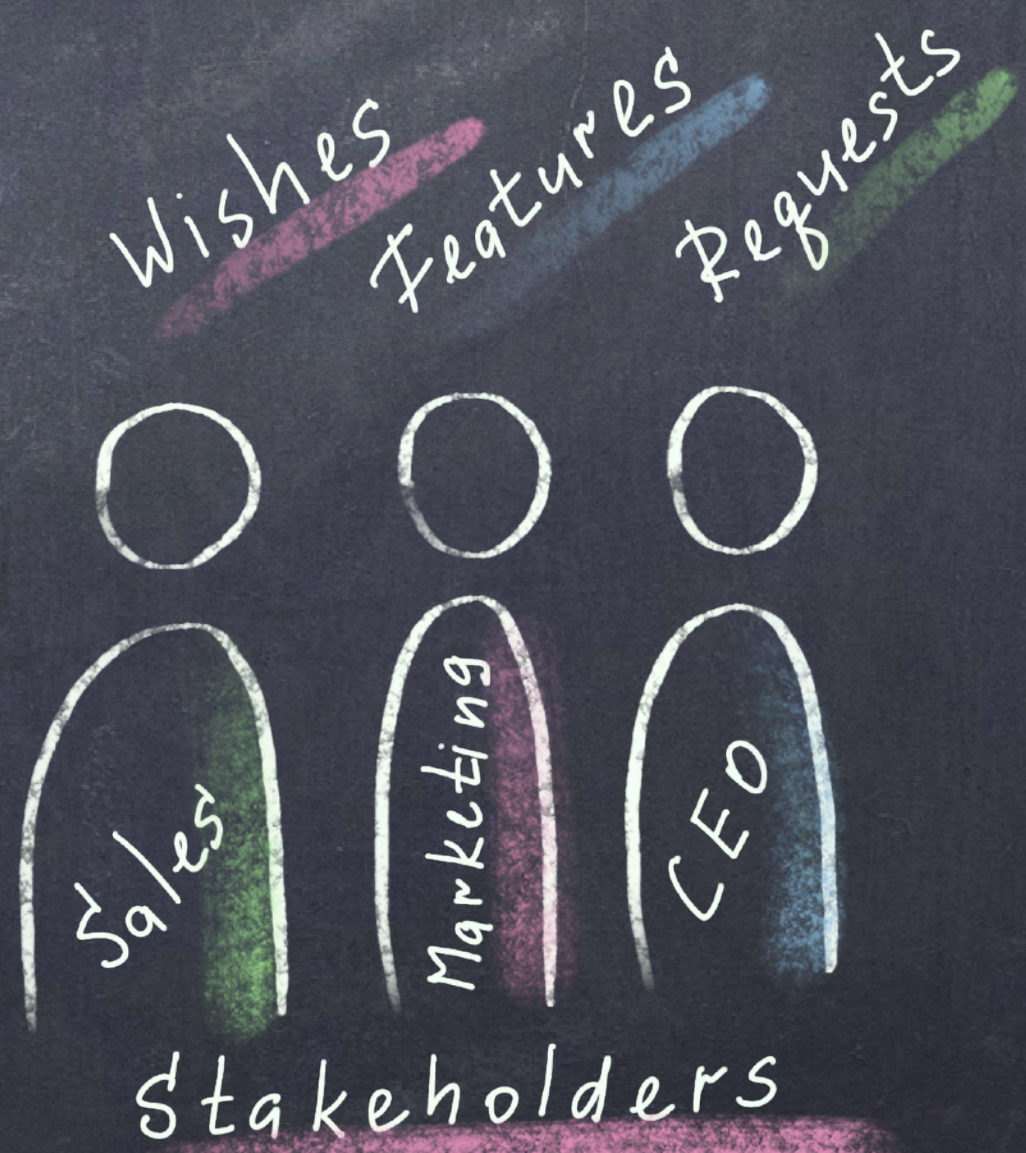 Wishes
Features
Requests
Sales
Marketing
CEO
Stakeholders